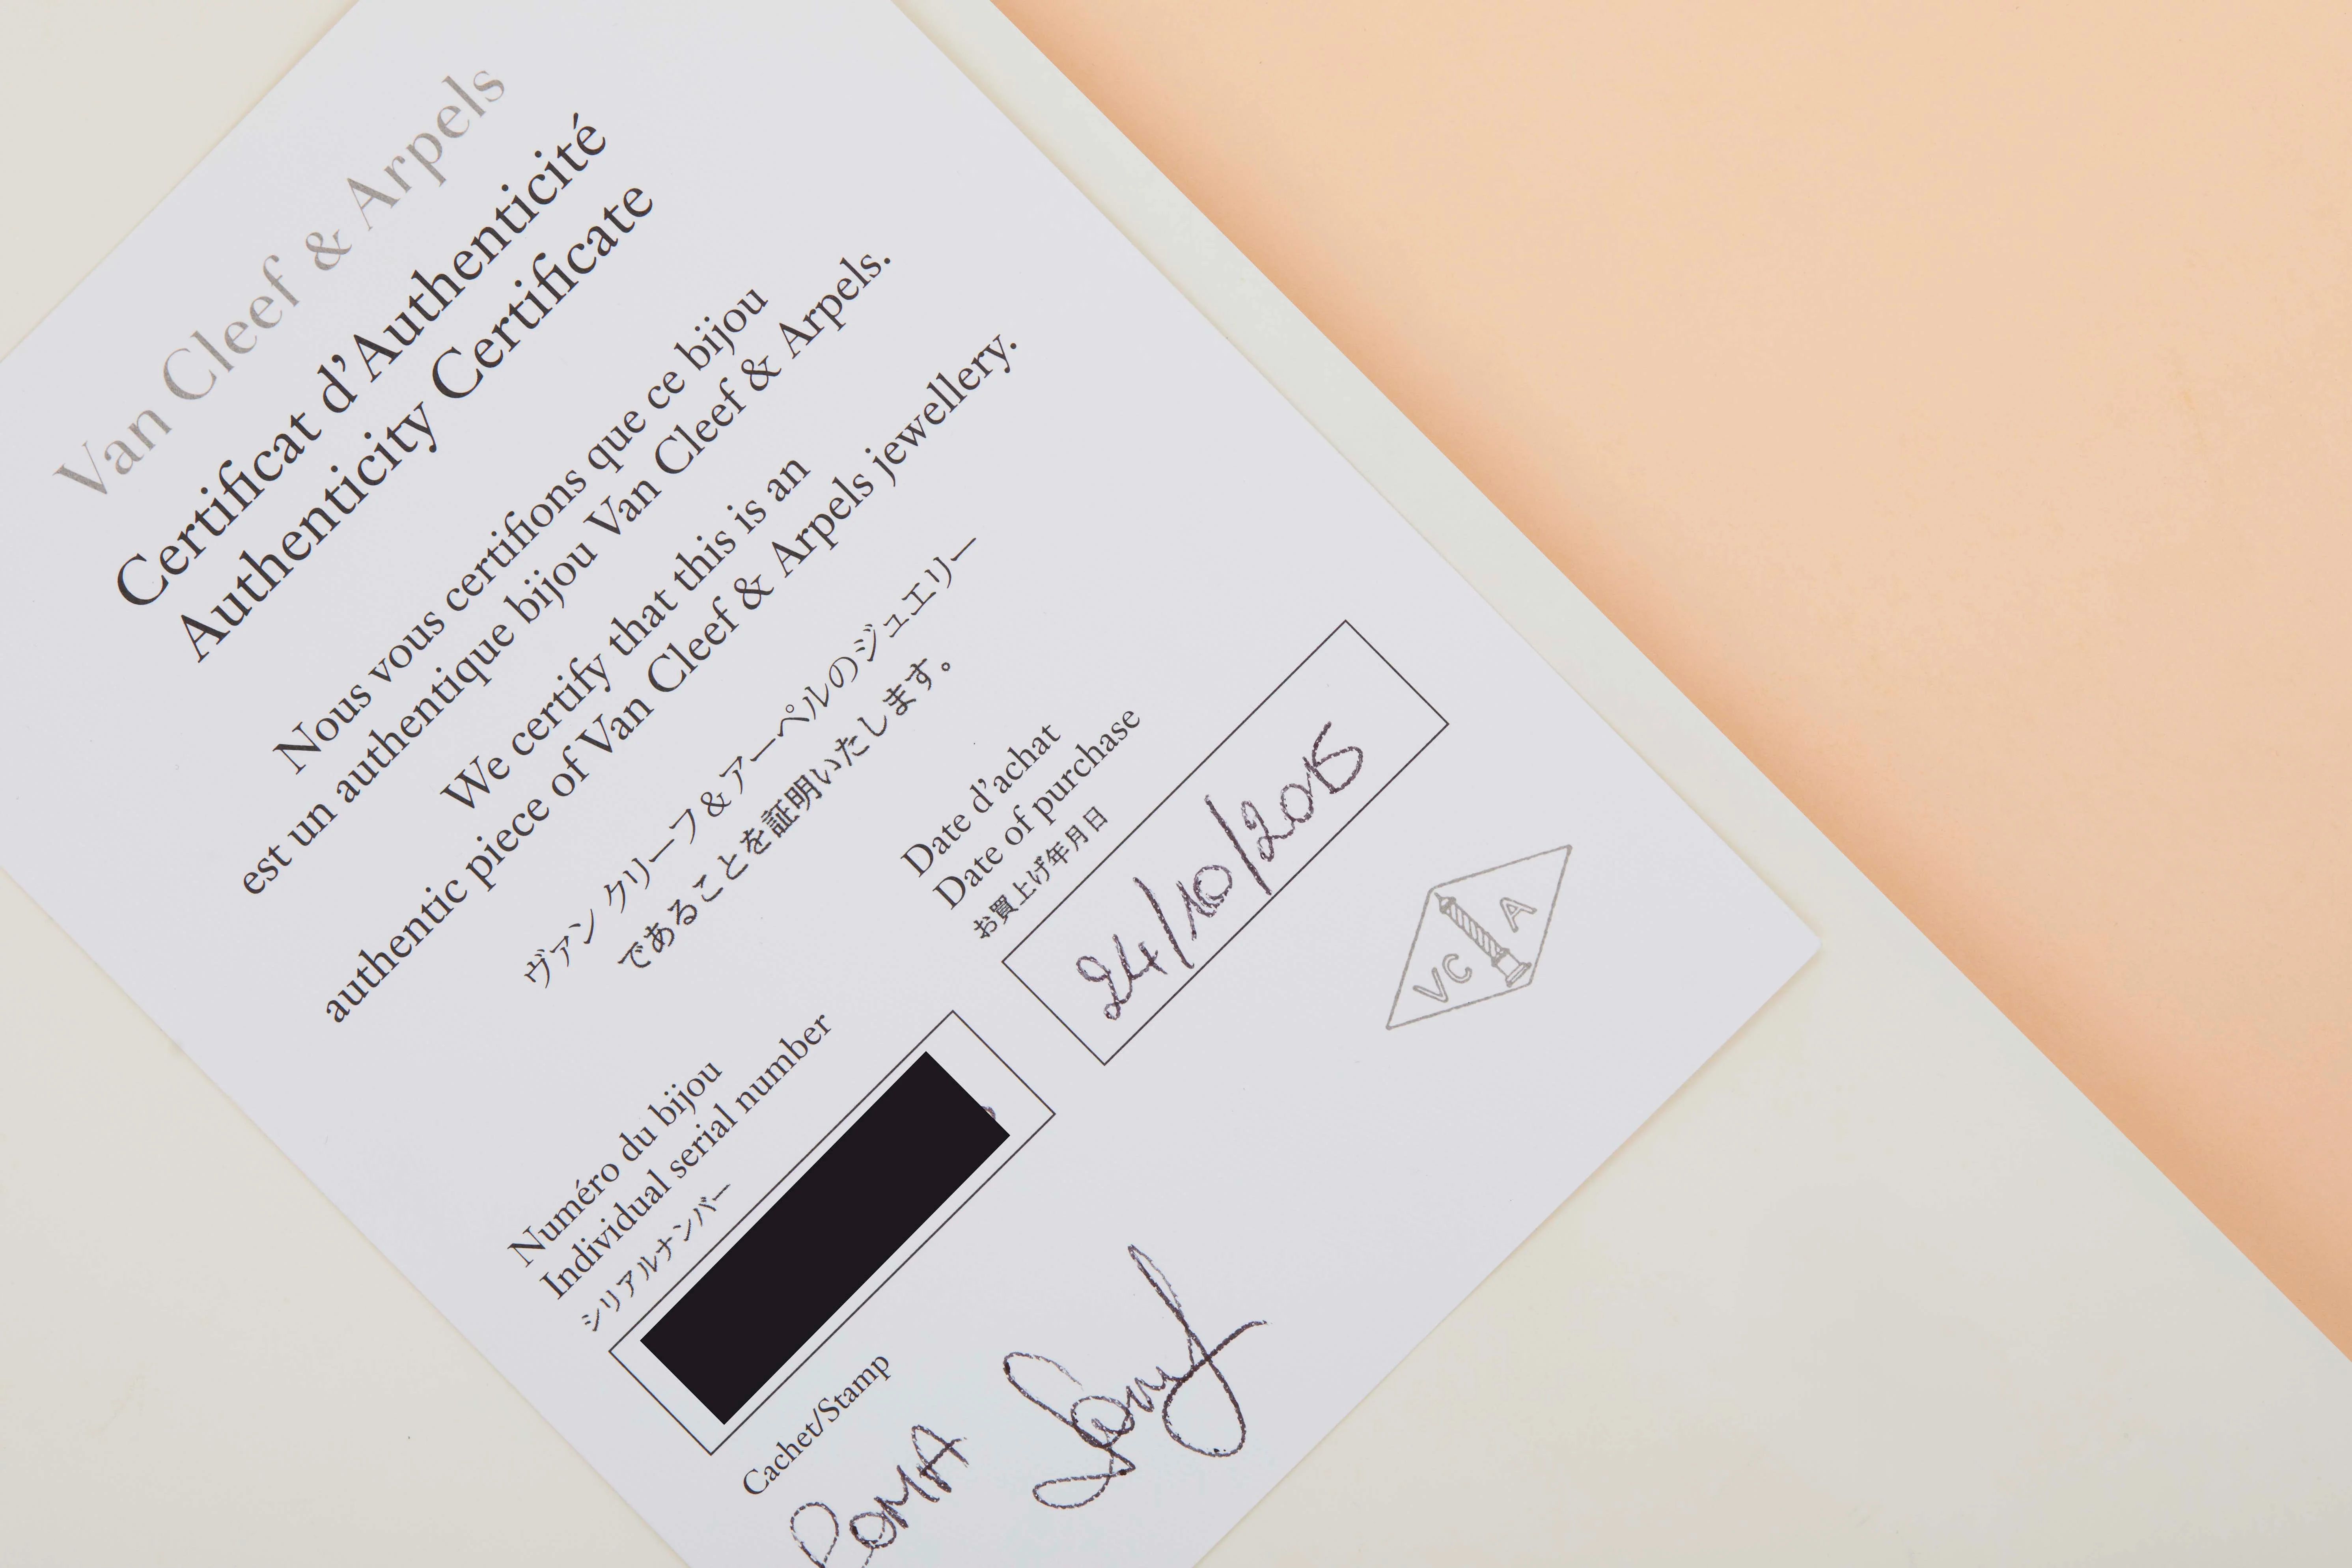 Van Cleef & Arpels
Certificat d'Authenticité
Authenticity Certificate
Nous vous certifions que ce bijou
est un authentique bijou Van Cleef & Arpels.
We certify that this is an
authentic piece of Van Cleef & Arpels jewellery.
ヴァン クリーフ&アーペルのジュエリー
であることを証明いたします。
Numéro du bijou
Individual serial number
シリアルナンバー
Date d'achat
Date of purchase
お買上げ年月日
24/10/2015
Cachet/Stamp
ROMA
VC A